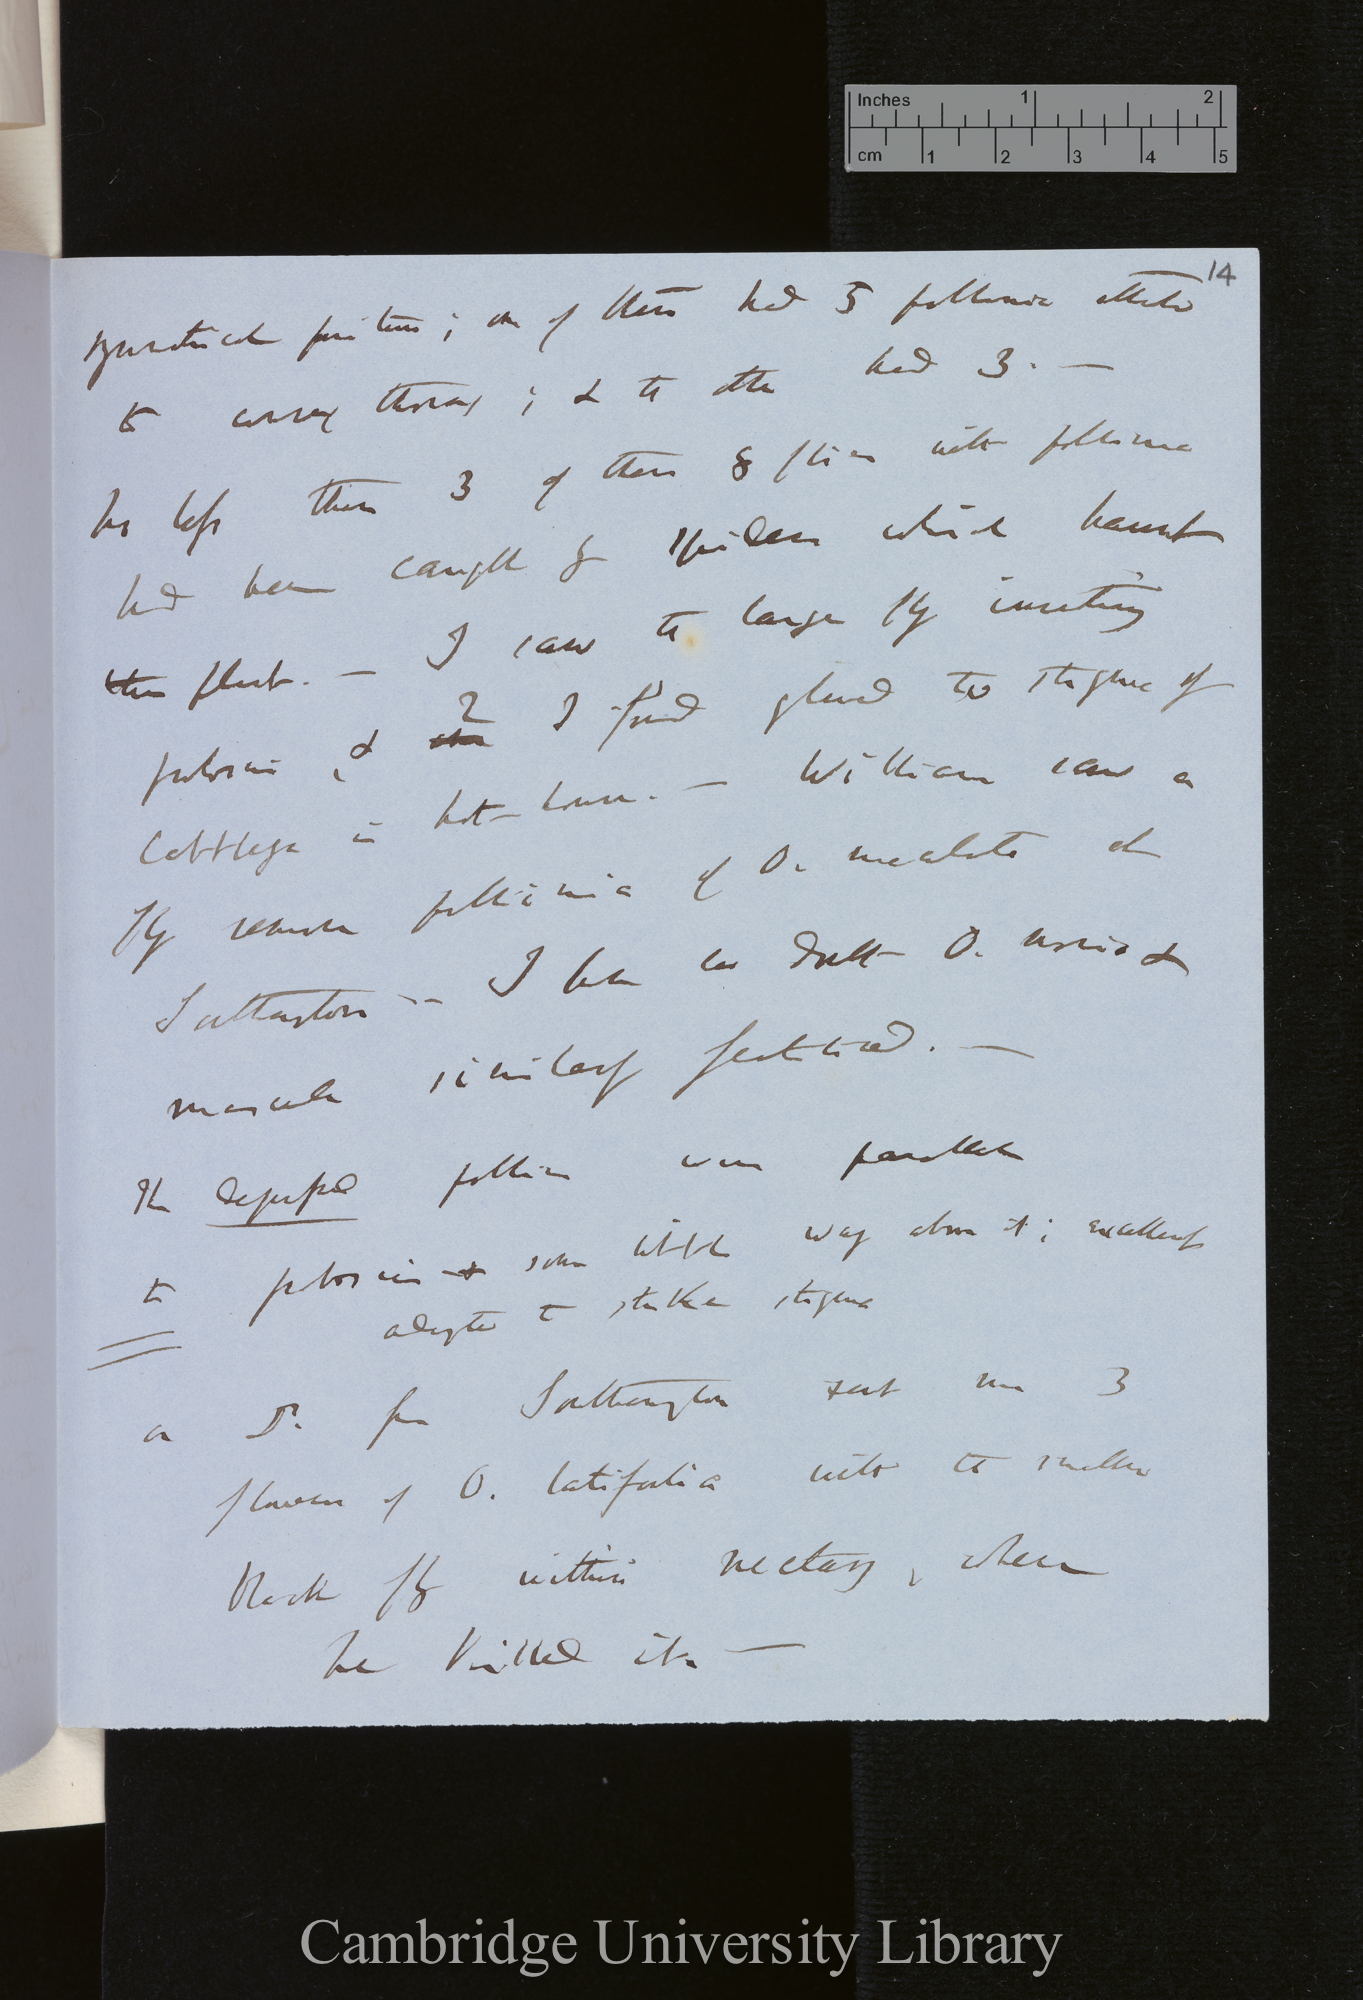 Inches 1 2
cm 1 2 3 4 5
14
symmetrical position; one of them had 5 pollinia attached
to convex thorax; & the other had 3. —
No less than 3 of these 8 flies with pollinia
had been caught by spiders which haunt
this plant. — I saw the large fly inserting
proboscis, & 2 I found glued to stigma of
Cattleya in hot-house. — William saw a
fly remove pollinia of O. maculata at
Southampton — I have no doubt O. morio &
mascula similarly fertilised. —
The depressed pollinia were parallel
to proboscis & some little way above it; excellently
adapted to strike stigma
a Dr. from Southampton sent me 3
flowers of O. latifolia with the smaller
black fly within nectary, where
he killed it. —
Cambridge University Library